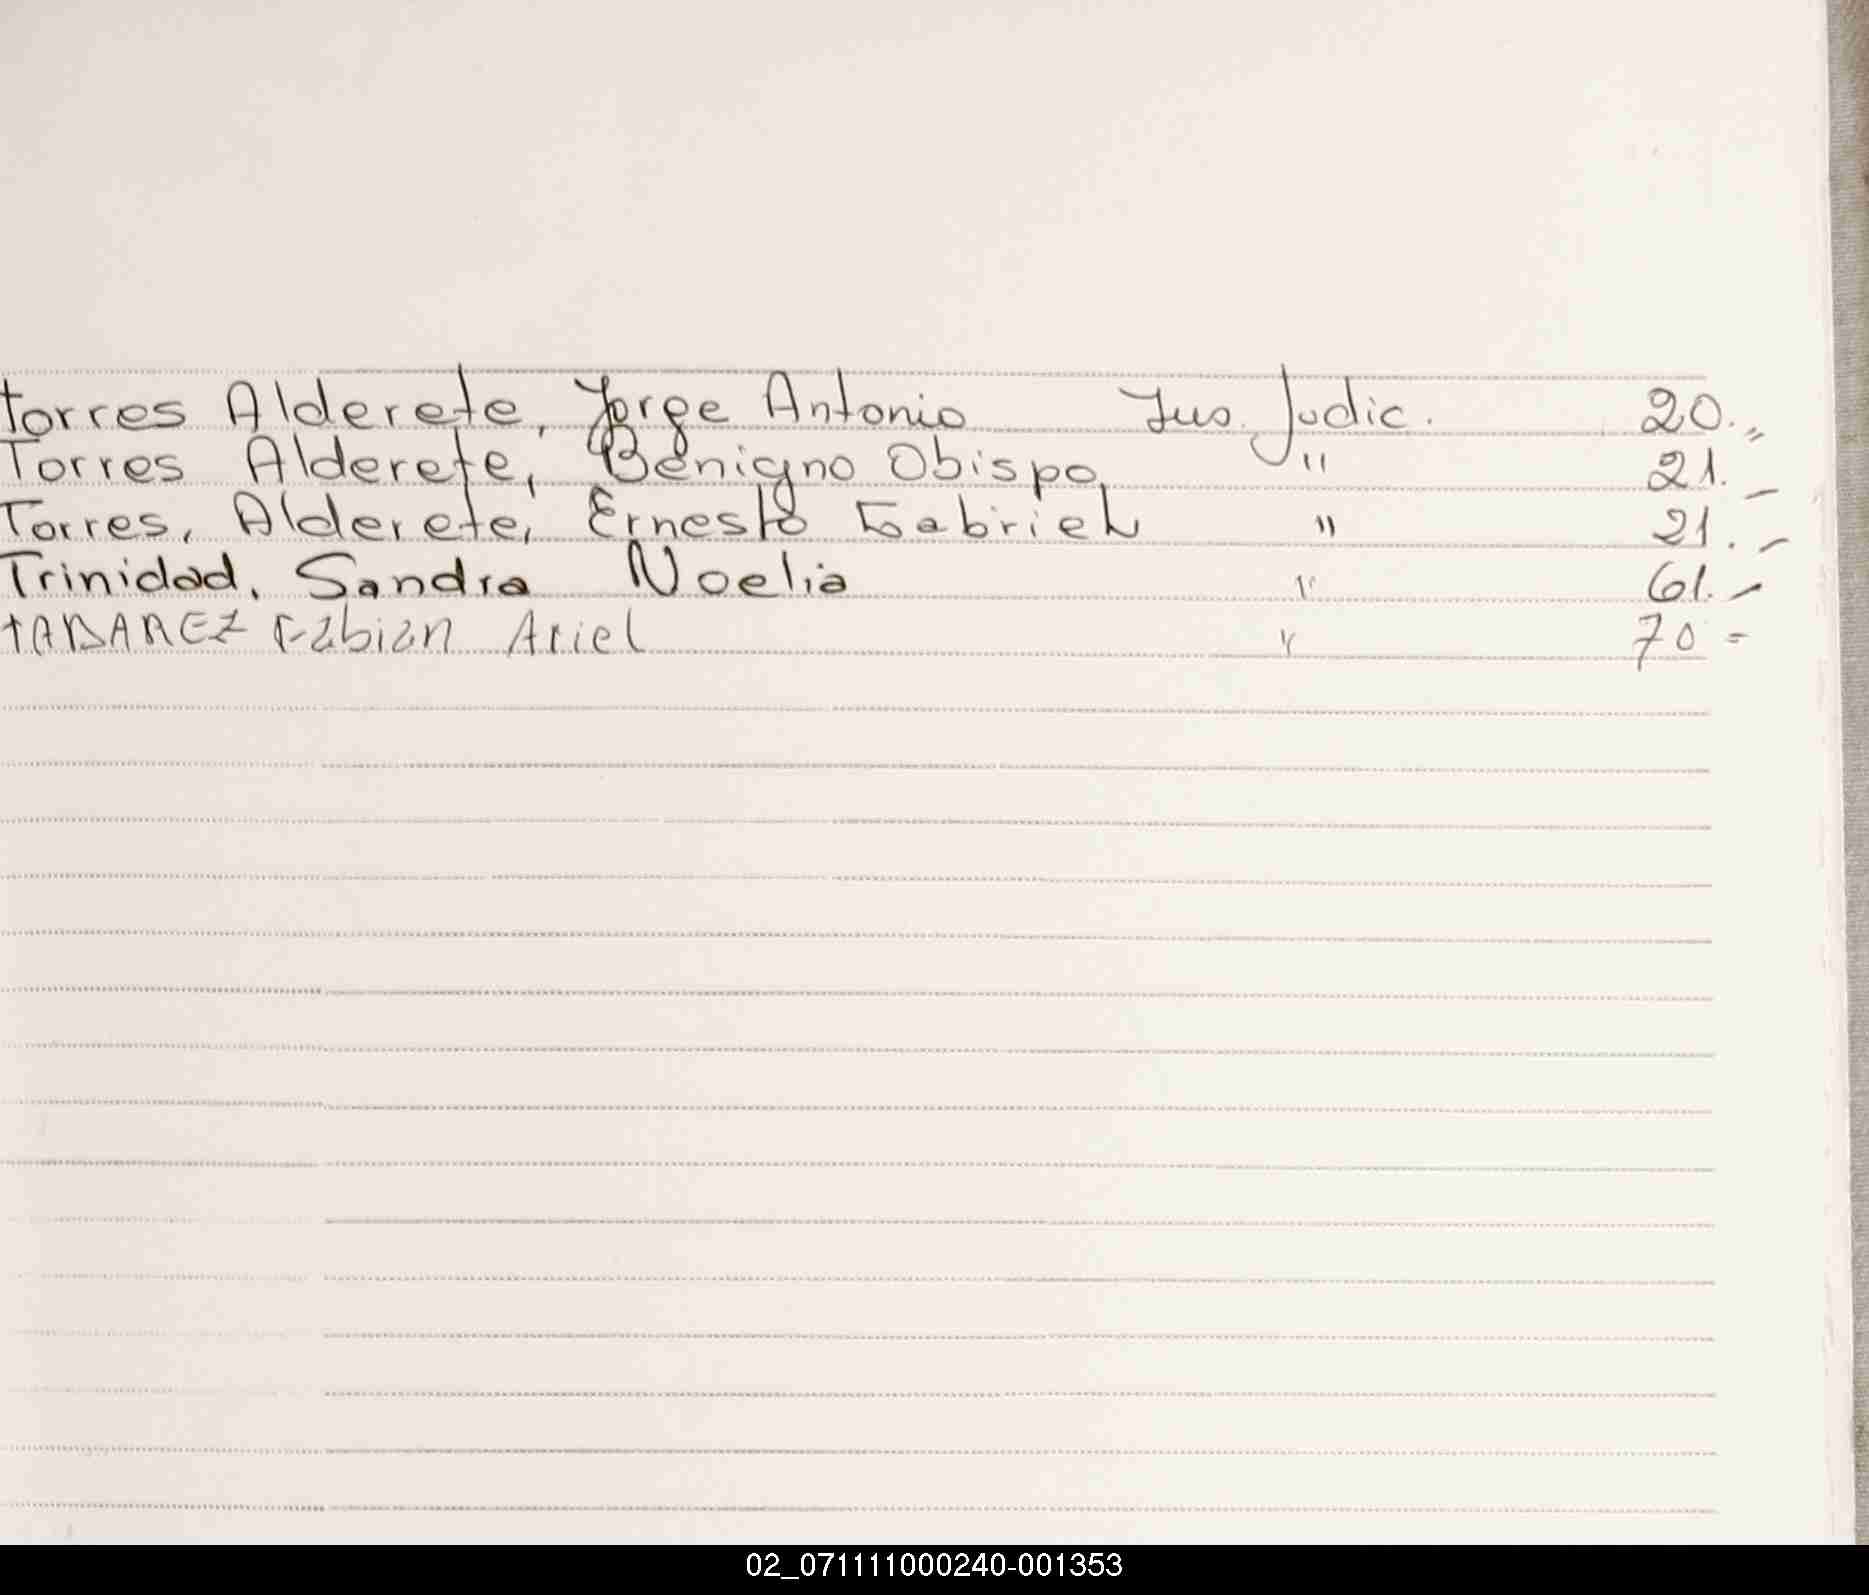 Torres Alderete, Jorge Antonio Ius. Judic. 20.,,
Torres Alderete, Benigno Obispo " 21. –
Torres, Alderete, Ernesto Gabriel " 21. –
Trinidad, Sandra Noelia " 61. –
TABAREZ Fabian Ariel " 70 =
02_071111000240-001353